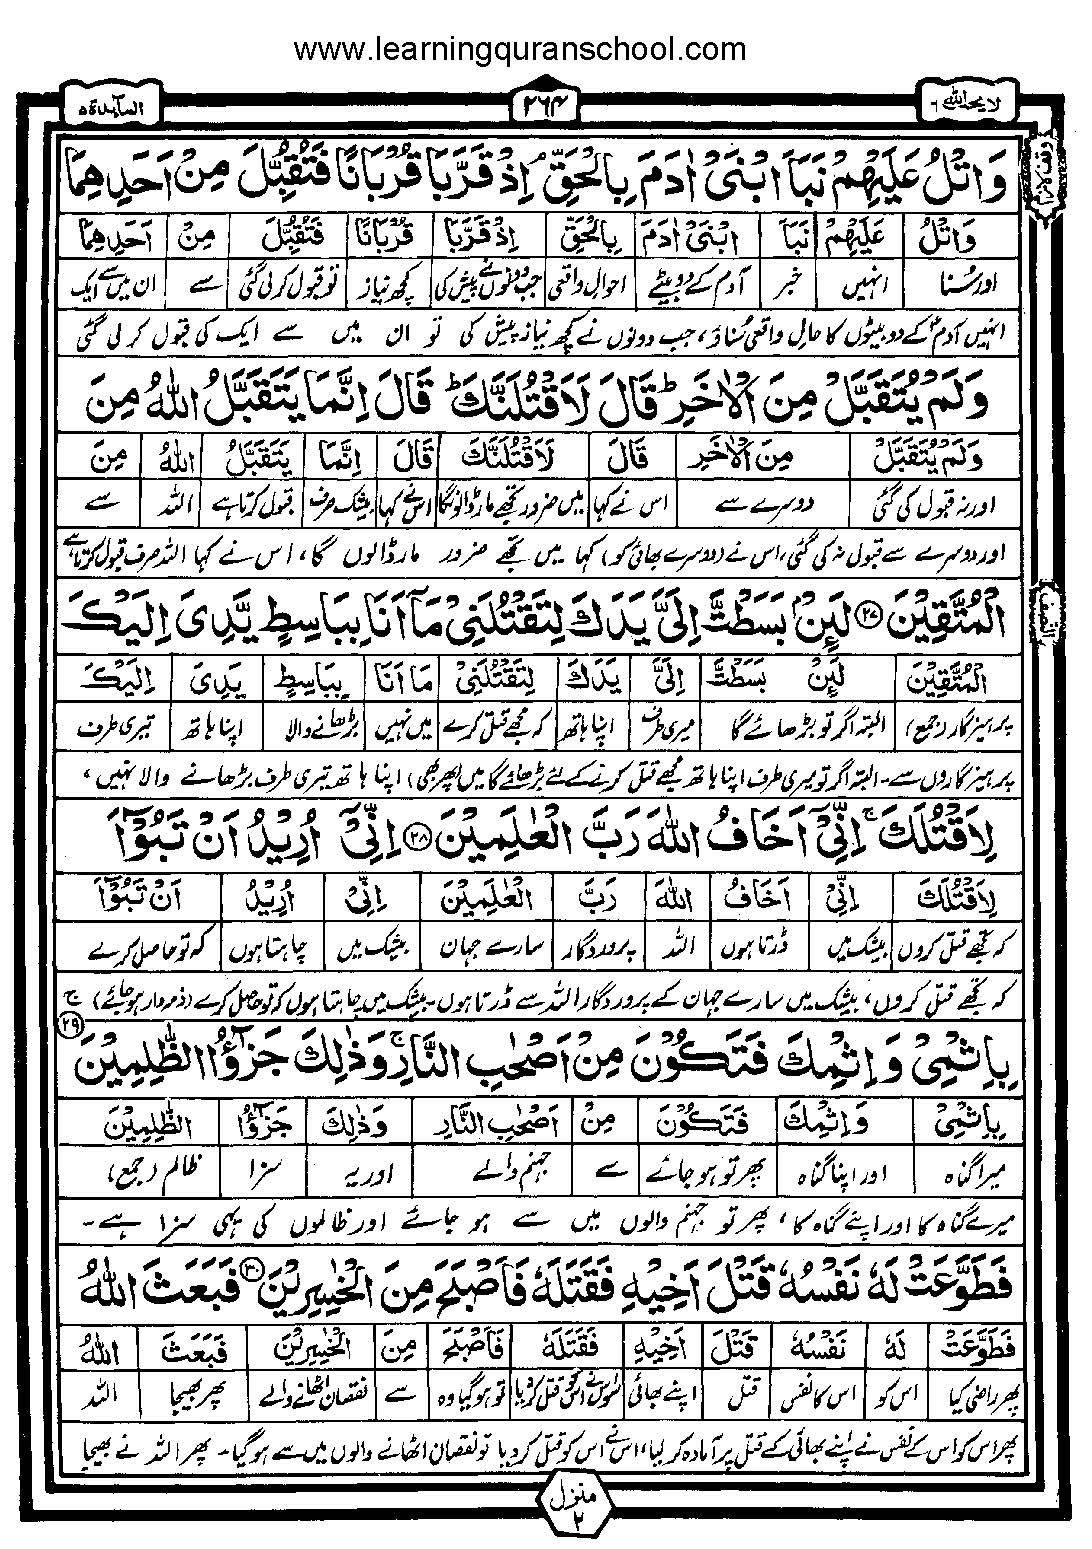 www.learningquranschool.com
لا یحب اللہ ۶
۲۶۴
المآئدۃ ۵
وَاتْلُ عَلَيْهِمْ نَبَاَ ابْنَيْ اٰدَمَ بِالْحَقِّ ۘ اِذْ قَرَّبَا قُرْبَانًا فَتُقُبِّلَ مِنْ اَحَدِهِمَا
وَاتْلُ عَلَيْهِمْ نَبَاَ ابْنَيْ اٰدَمَ بِالْحَقِّ اِذْ قَرَّبَا قُرْبَانًا فَتُقُبِّلَ مِنْ اَحَدِهِمَا
اور سُنا انہیں خبر آدم کے دو بیٹے احوال واقعی جب دونوں نے پیش کی کچھ نیاز تو قبول کرلی گئی سے ان میں سے ایک
انہیں آدمؑ کے دو بیٹوں کا حالِ واقعی سُناؤ، جب دونوں نے کچھ نیاز پیش کی تو ان میں سے ایک کی قبول کر لی گئی
وَلَمْ يُتَقَبَّلْ مِنَ الْاٰخَرِ ؕ قَالَ لَاَقْتُلَنَّكَ ؕ قَالَ اِنَّمَا يَتَقَبَّلُ اللّٰهُ مِنَ
وَلَمْ يُتَقَبَّلْ مِنَ الْاٰخَرِ قَالَ لَاَقْتُلَنَّكَ قَالَ اِنَّمَا يَتَقَبَّلُ اللّٰهُ مِنَ
اور نہ قبول کی گئی دوسرے سے اس نے کہا میں ضرور تجھے مار ڈالونگا اس نے کہا بیشک صرف قبول کرتا ہے اللہ سے
اور دوسرے سے قبول نہ کی گئی، اس نے (دوسرے بھائی کو) کہا میں تجھے ضرور مار ڈالوں گا، اس نے کہا اللہ صرف قبول کرتا ہے
الْمُتَّقِيْنَ ۝۲۷ لَئِنْۢ بَسَطْتَّ اِلَيَّ يَدَكَ لِتَقْتُلَنِيْ مَاۤ اَنَا بِبَاسِطٍ يَّدِيَ اِلَيْكَ
الْمُتَّقِيْنَ لَئِنْۢ بَسَطْتَّ اِلَيَّ يَدَكَ لِتَقْتُلَنِيْ مَاۤ اَنَا بِبَاسِطٍ يَدِيَ اِلَيْكَ
پرہیزگار (جمع) البتہ اگر تو بڑھائے گا میری طرف اپنا ہاتھ کہ مجھے قتل کرے میں نہیں بڑھانے والا اپنا ہاتھ تیری طرف
پرہیزگاروں سے۔ البتہ اگر تو میری طرف اپنا ہاتھ مجھے قتل کرنے کے لئے بڑھائے گا میں (پھر بھی) اپنا ہاتھ تیری طرف بڑھانے والا نہیں،
لِاَقْتُلَكَ ۚ اِنِّيْۤ اَخَافُ اللّٰهَ رَبَّ الْعٰلَمِيْنَ ۝۲۸ اِنِّيْۤ اُرِيْدُ اَنْ تَبُوْٓاَ
لِاَقْتُلَكَ اِنِّيْۤ اَخَافُ اللّٰهَ رَبَّ الْعٰلَمِيْنَ اِنِّيْۤ اُرِيْدُ اَنْ تَبُوْٓاَ
کہ تجھے قتل کروں بیشک میں ڈرتا ہوں اللہ پروردگار سارے جہان بیشک میں چاہتا ہوں کہ تو حاصل کرے
کہ تجھے قتل کروں، بیشک میں سارے جہان کے پروردگار اللہ سے ڈرتا ہوں۔ بیشک میں چاہتا ہوں کہ تو حاصل کرے (ذمہ دار ہو جائے)
بِاِثْمِيْ وَاِثْمِكَ فَتَكُوْنَ مِنْ اَصْحٰبِ النَّارِ ۚ وَذٰلِكَ جَزٰٓؤُا الظّٰلِمِيْنَ ۝۲۹
بِاِثْمِيْ وَاِثْمِكَ فَتَكُوْنَ مِنْ اَصْحٰبِ النَّارِ وَذٰلِكَ جَزٰٓؤُا الظّٰلِمِيْنَ
میرا گناہ اور اپنا گناہ پھر تو ہو جائے سے جہنم والے اور یہ سزا ظالم (جمع)
میرے گناہ کا اور اپنے گناہ کا، پھر تو جہنم والوں میں سے ہو جائے اور ظالموں کی یہی سزا ہے۔
فَطَوَّعَتْ لَهٗ نَفْسُهٗ قَتْلَ اَخِيْهِ فَقَتَلَهٗ فَاَصْبَحَ مِنَ الْخٰسِرِيْنَ ۝۳۰ فَبَعَثَ اللّٰهُ
فَطَوَّعَتْ لَهٗ نَفْسُهٗ قَتْلَ اَخِيْهِ فَقَتَلَهٗ فَاَصْبَحَ مِنَ الْخٰسِرِيْنَ فَبَعَثَ اللّٰهُ
پھر راضی کیا اس کو اس کا نفس قتل اپنے بھائی سو اس نے اس کو قتل کر دیا تو ہو گیا وہ سے نقصان اٹھانے والے پھر بھیجا اللہ
پھر اس کو اس کے نفس نے اپنے بھائی کے قتل پر آمادہ کر لیا، اس نے اس کو قتل کر دیا تو نقصان اٹھانے والوں میں سے ہو گیا۔ پھر اللہ نے بھیجا
النصف
منزل ۲